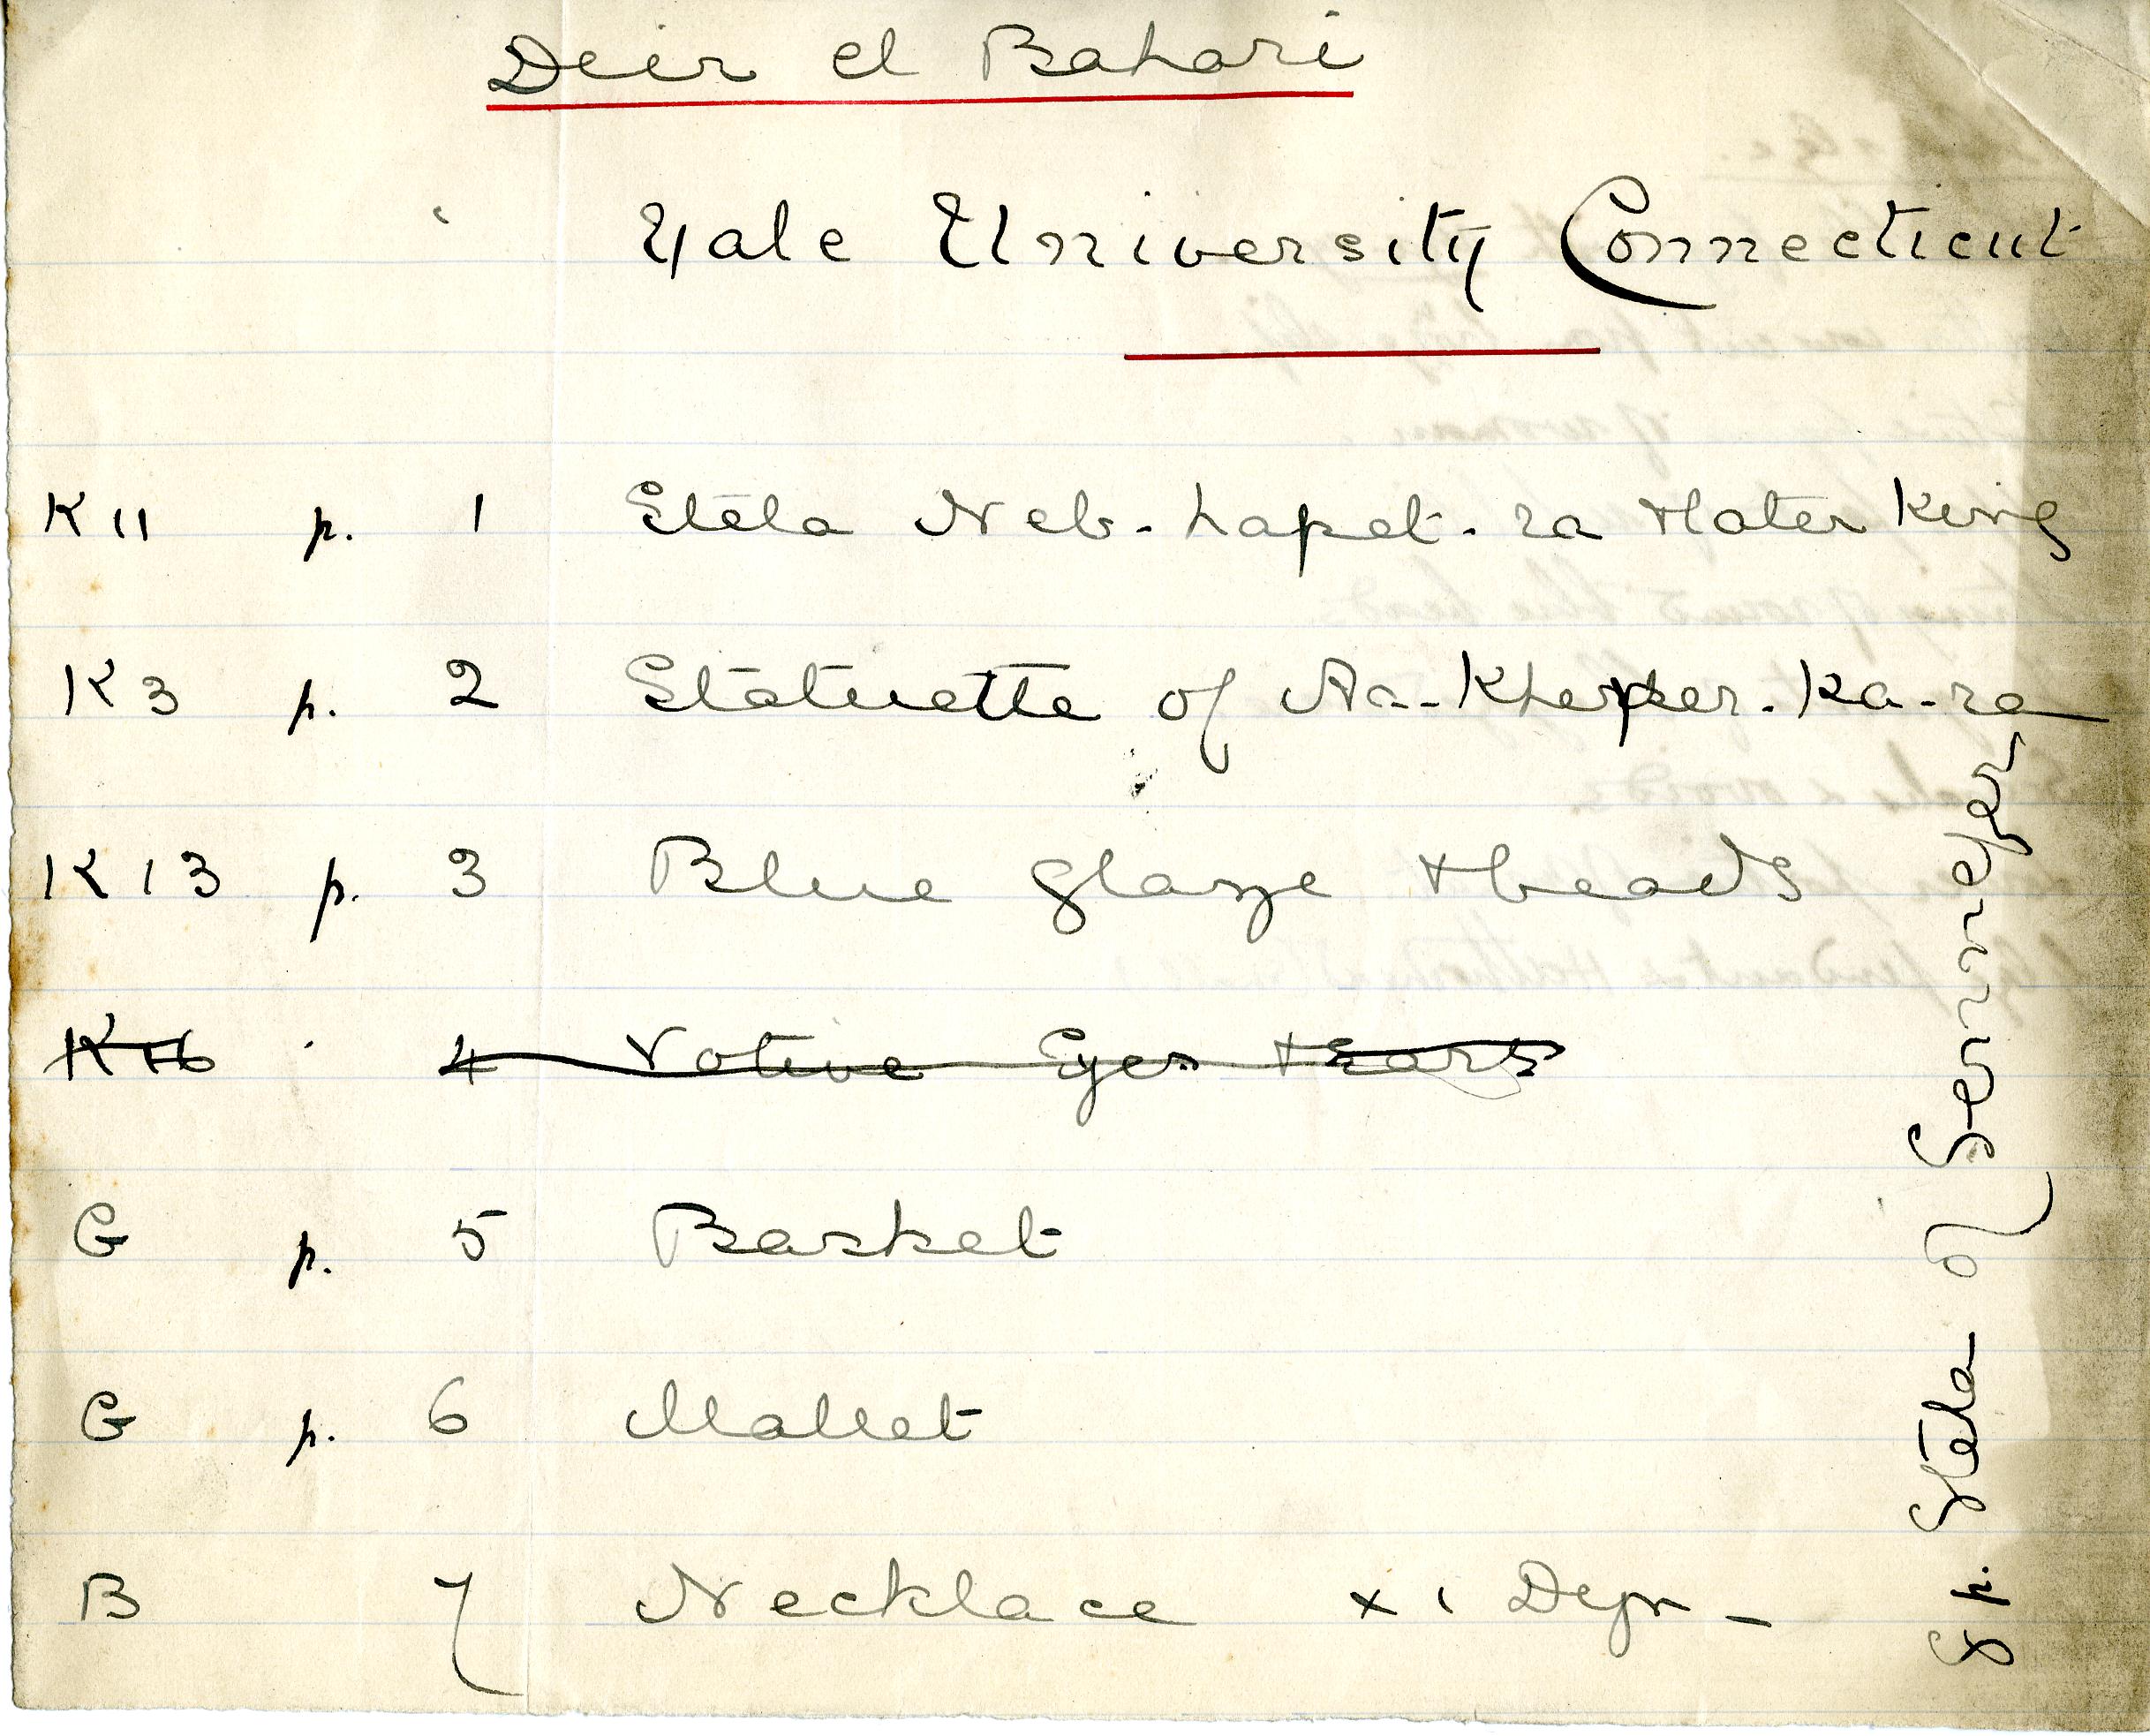 Deir el Bahari
Yale University Connecticut
K 11 p. 1 Stela Neb-hapet-ra & later King
K 3 p. 2 Statuette of Aa-Kheper-ka-ra
K 13 p. 3 Blue glaze & beads
K 16 4 Votive Eyes & Ears
G p. 5 Basket
G p. 6 Mallet
B 7 Necklace XI Dyn-
8 p. Stela of Sennefer